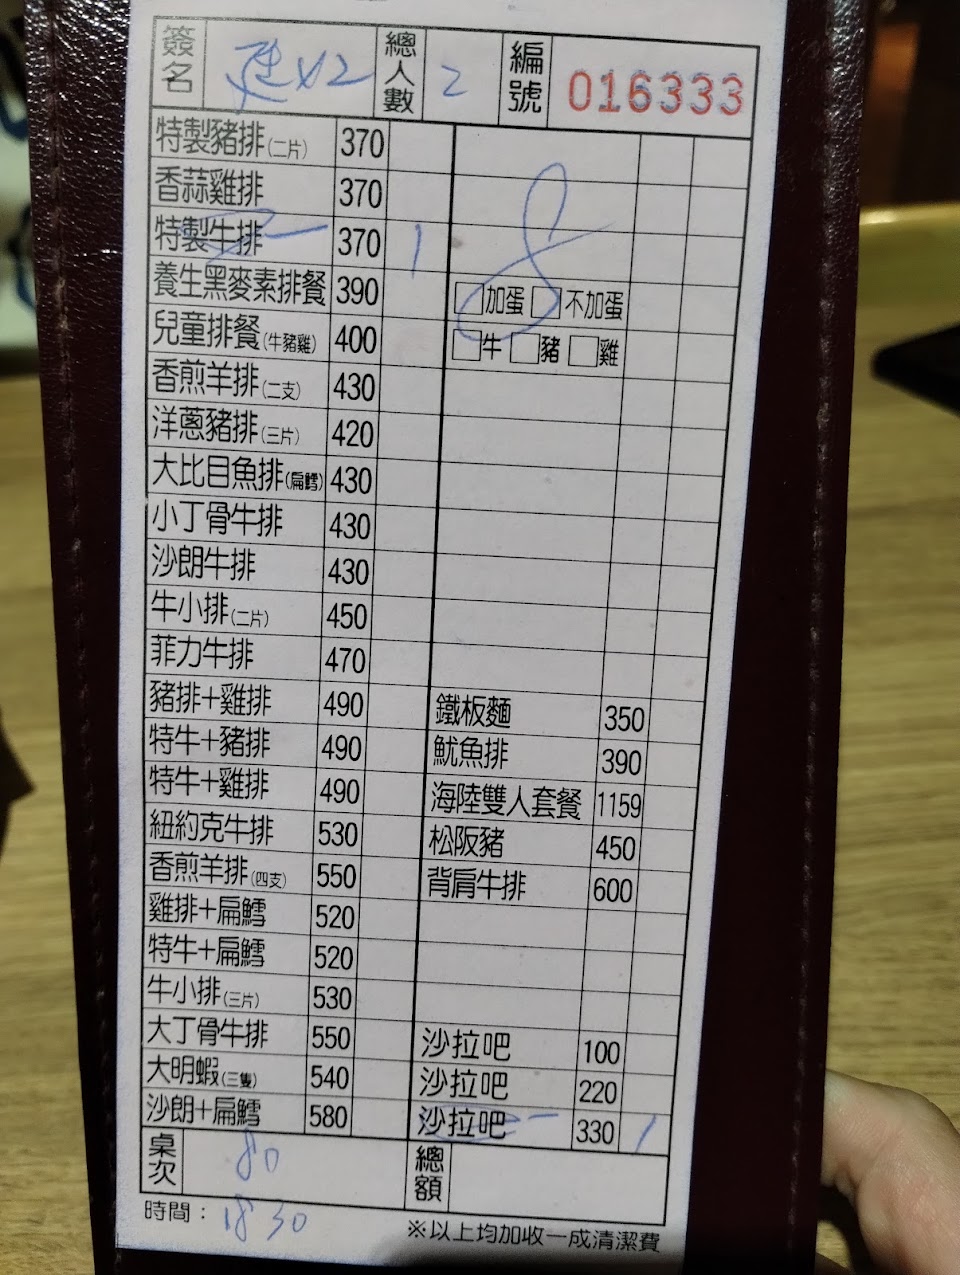 簽名 總人數 2 編號 016333
特製豬排(二片) 370
香蒜雞排 370
特製牛排 370 1
養生黑麥素排餐 390 加蛋 不加蛋
兒童排餐(牛豬雞) 400 牛 豬 雞
香煎羊排(二支) 430
洋蔥豬排(三片) 420
大比目魚排(扁鱈) 430
小丁骨牛排 430
沙朗牛排 430
牛小排(二片) 450
菲力牛排 470
豬排+雞排 490 鐵板麵 350
特牛+豬排 490 魷魚排 390
特牛+雞排 490 海陸雙人套餐 1159
紐約克牛排 530 松阪豬 450
香煎羊排(四支) 550 背肩牛排 600
雞排+扁鱈 520
特牛+扁鱈 520
牛小排(三片) 530
大丁骨牛排 550 沙拉吧 100
大明蝦(三隻) 540 沙拉吧 220
沙朗+扁鱈 580 沙拉吧 330 1
桌次 80 總額
時間： 1830 ※以上均加收一成清潔費